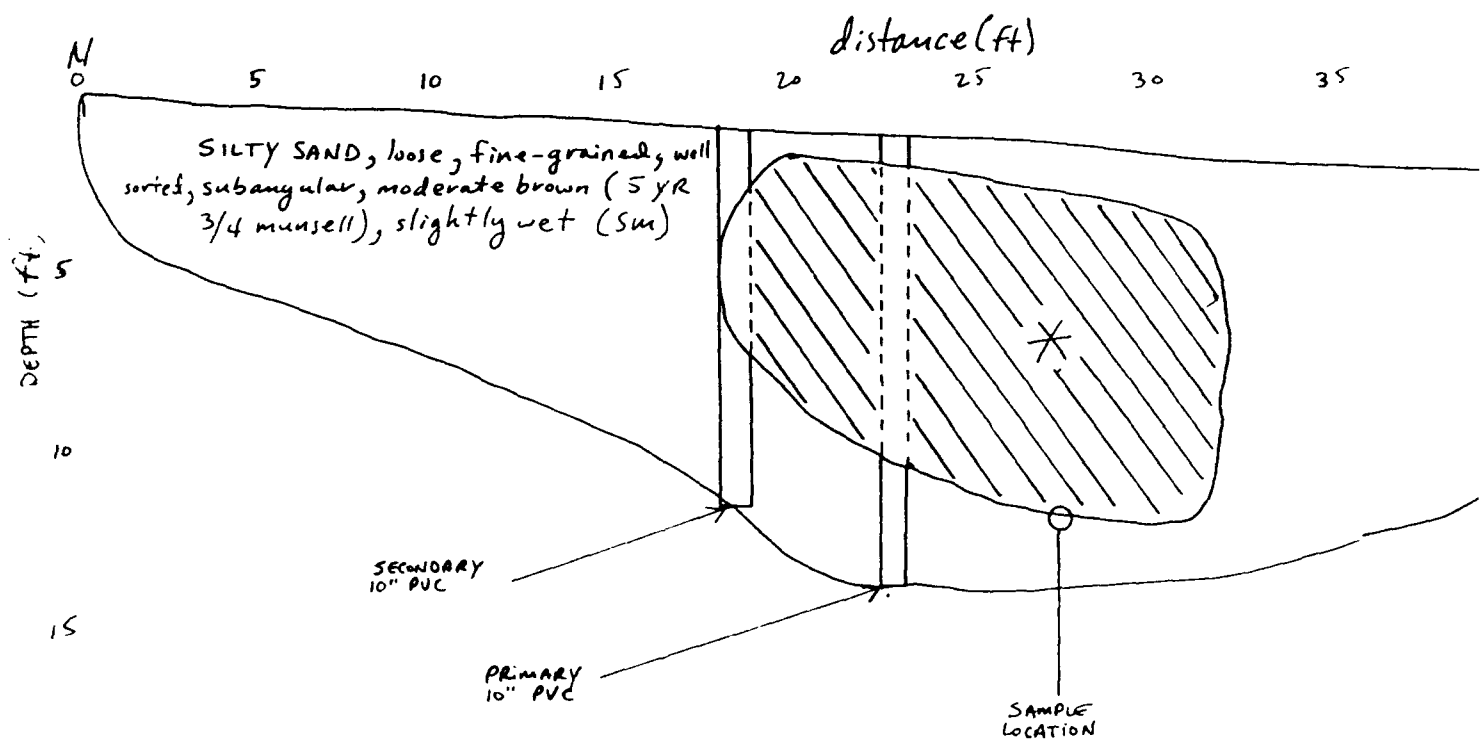 distance (ft)
N
0 5 10 15 20 25 30 35
SILTY SAND, loose, fine-grained, well
sorted, subangular, moderate brown (5 YR
3/4 munsell), slightly wet (SM)
DEPTH (ft)
5
10
15
SECONDARY
10" PVC
PRIMARY
10" PVC
SAMPLE
LOCATION